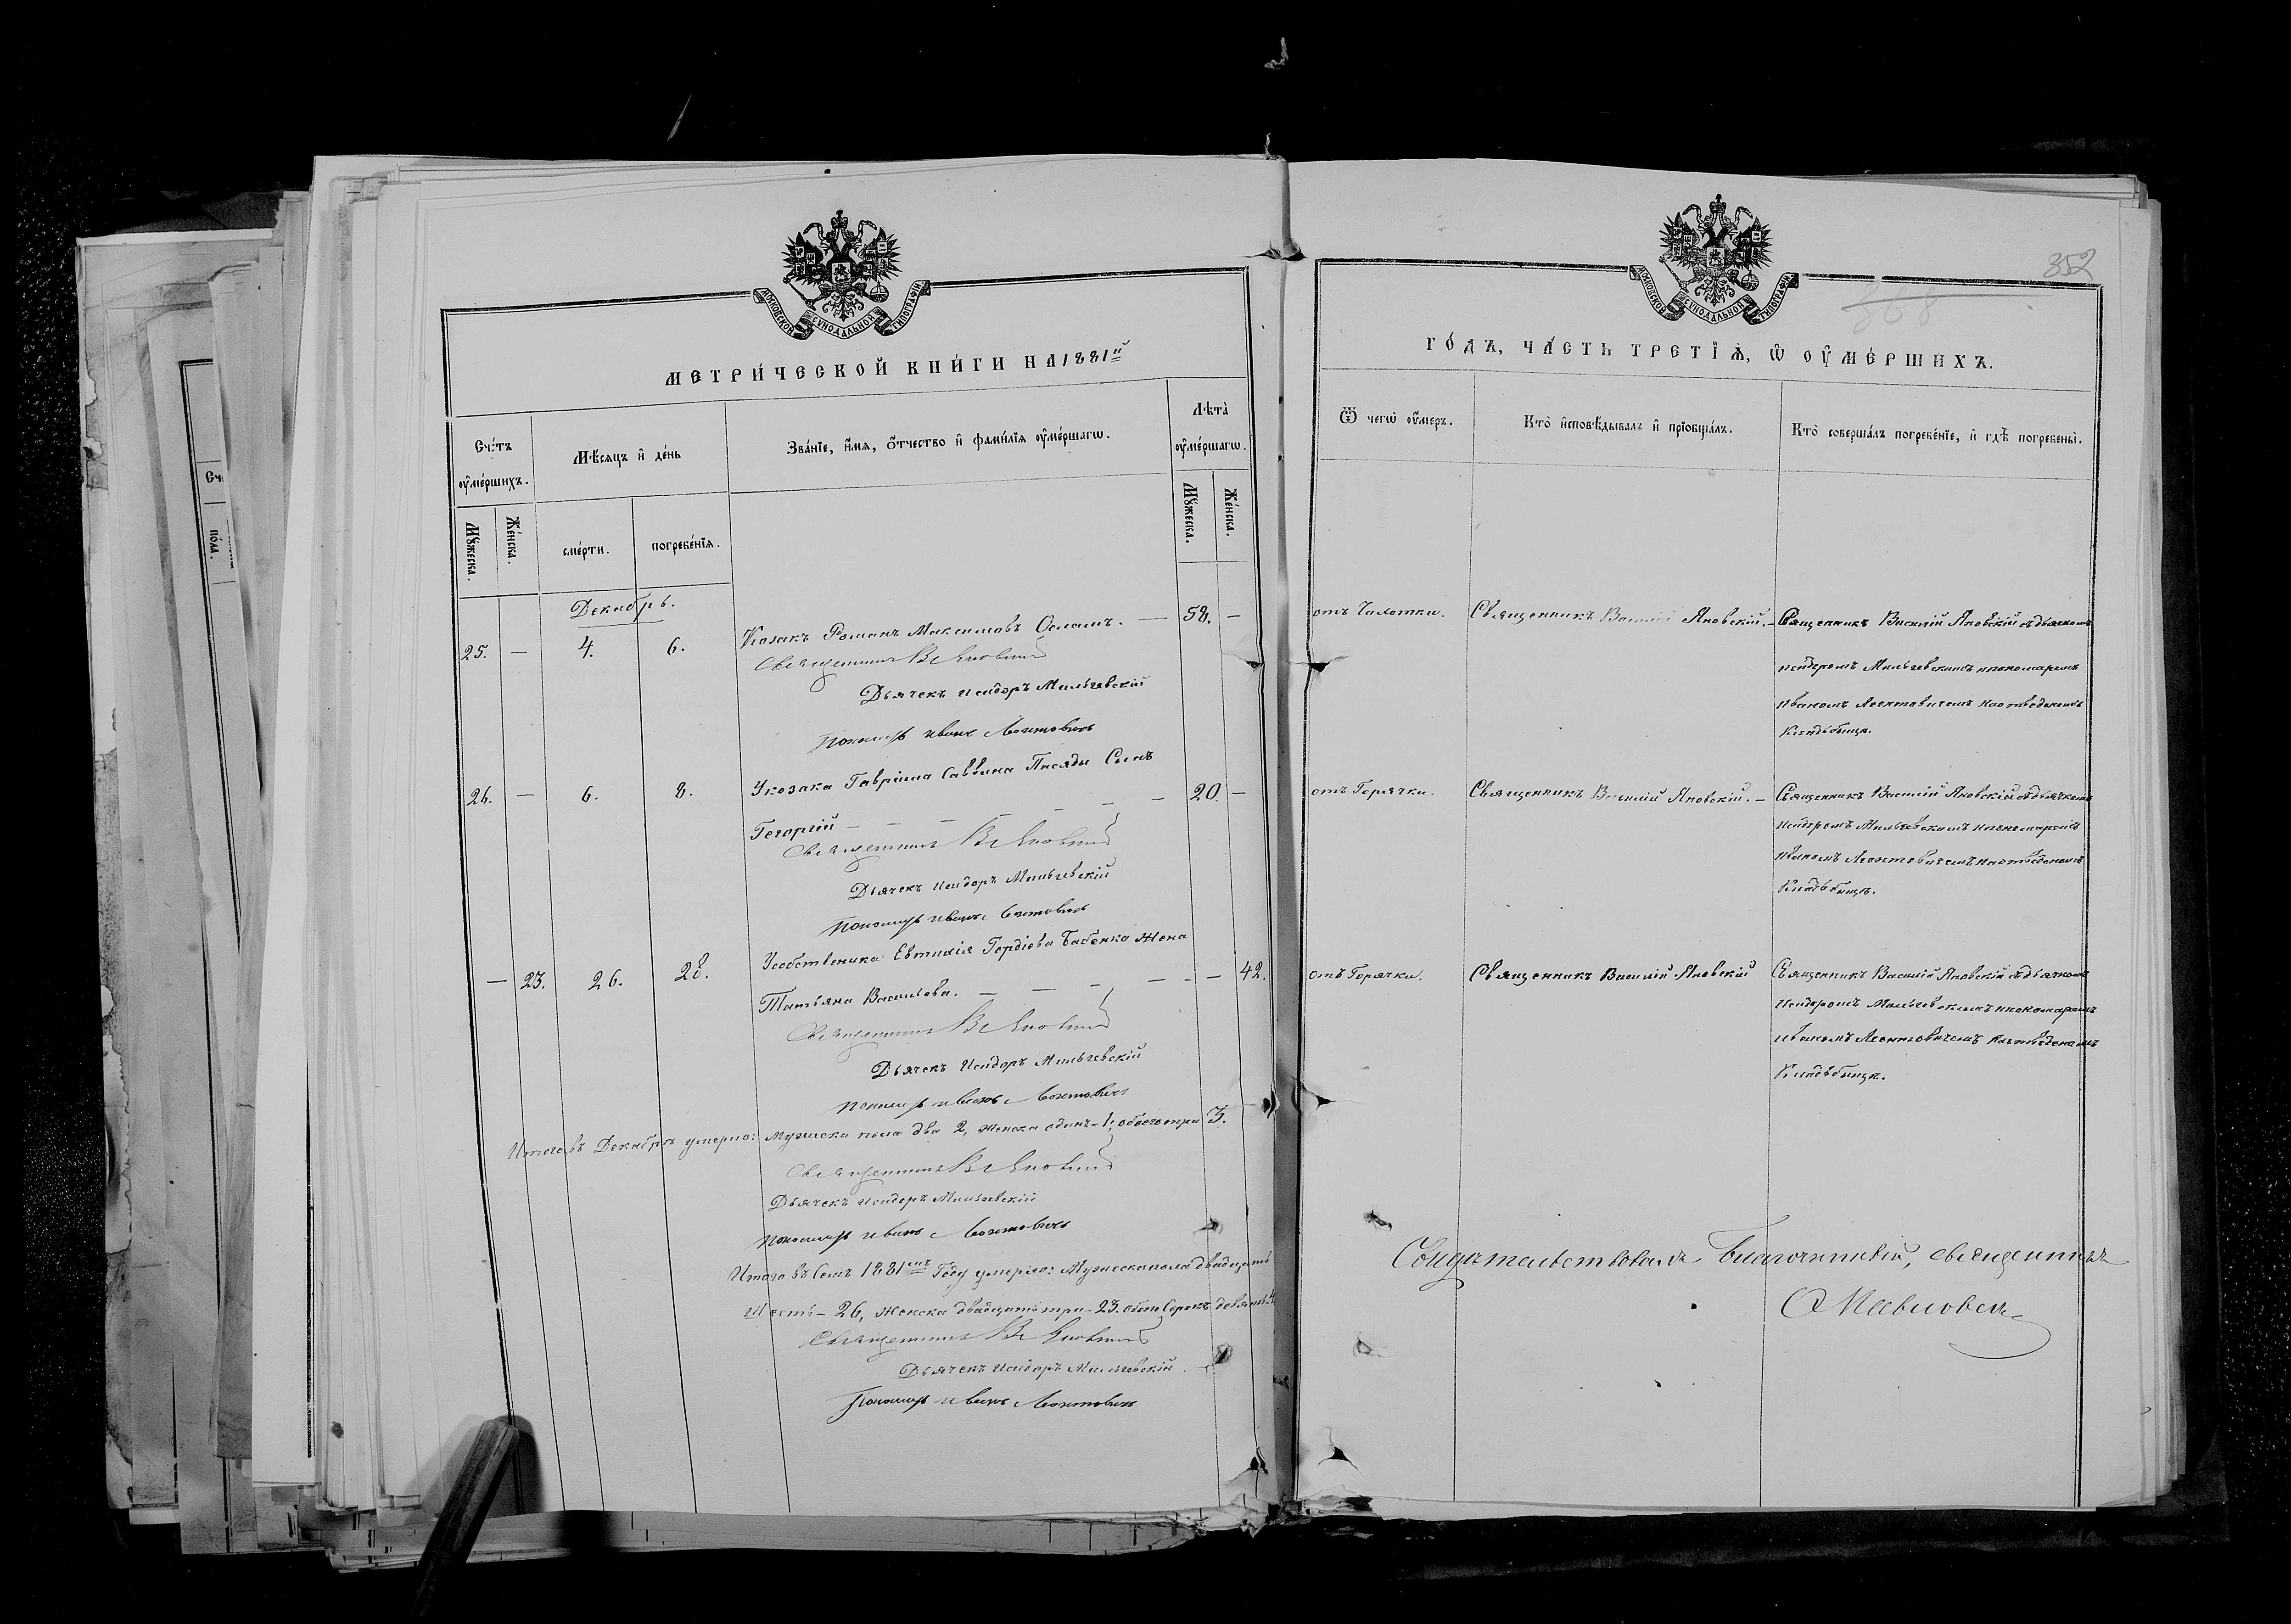 МОСКОВСКОЙ СѴНОДАЛЬНОЙ ТИПОГРАФІИ
МЕТРИ́ЧЕСКОЙ КНИ́ГИ НА 1881й
Сче́тъ ᲂу҆ме́ршихъ.
Мѣ́сяцъ и҆ де́нь
Зва́нїе, и҆́мя, ѻ҆́тчество и҆ фами́лїя ᲂу҆ме́ршагѡ.
Лѣта̀ ᲂу҆ме́ршагѡ.
Мꙋ́жеска.
Же́нска.
сме́рти.
погребе́нїя.
Мꙋ́жеска.
Же́нска.
Декабрь.
25. — 4. 6. Козакъ Романъ Максимовъ Осламъ. — 58. —
Священникъ В Яновскій
Дьячекъ Исидоръ Мильчевскій
Пономарь Иванъ Леонтовичъ
26. — 6. 8. У козака Гавріила Саввина Писяды Сынъ 20. —
Георгій — — — — — —
Священникъ В Яновскій
Дьячекъ Исидоръ Мильчевскій
Пономарь Иванъ Леонтовичъ
— 23. 26. 28. У собственика Евтихія Гордіева Бабенка жена
Татьяна Васильева. — — — — - — 42.
Священникъ В Яновскій
Дьячекъ Исидоръ Мильчевскій
Пономарь Иванъ Леонтовичъ
Итого въ Декабрѣ умерло: Мужеска пола два 2, женска одинъ - 1; обоего три 3.
Священникъ В Яновскій
Дьячекъ Исидоръ Мильчевскій
Пономарь Иванъ Леонтовичъ
Итого въ Семъ 1881мъ Году умерло: Мужеска пола двадцать
Шесть - 26, женска двадцать три - 23. обоего Сорокъ девять
Священникъ В Яновскій
Дьячекъ Исидоръ Мильчевскій
Пономарь Иванъ Леонтовичъ
МОСКОВСКОЙ СѴНОДАЛЬНОЙ ТИПОГРАФІИ
352
368
ГО́ДЪ, ЧА́СТЬ ТРЕТЇѦ, Ѡ҆ ОУ҆МЕ́РШИХЪ.
Ѿ чегѡ̀ ᲂу҆́меръ.
Кто̀ и҆сповѣ́дывалъ и҆ прїобща́лъ.
Кто̀ соверша́лъ погребе́нїе, и҆ гдѣ̀ погребены̀.
отъ Чахотки. Священникъ Василій Яновскій. — Священникъ Василій Яновскій съ дьячкомъ
Исидоромъ Мильчевскимъ и пономаремъ
Иваномъ Леонтовичемъ на отведеномъ
Кладьбищѣ.
отъ Горячки. Священникъ Василій Яновскій. — Священникъ Василій Яновскій съ дьячкомъ
Исидоромъ Мильчевскимъ и пономаремъ
Иваномъ Леонтовичемъ на отведеномъ
Кладьбищѣ.
отъ Горячки. Священникъ Василій Яновскій Священникъ Василій Яновскій съ дьячкомъ
Исидоромъ Мильчевскимъ и пономаремъ
Иваномъ Леонтовичемъ на отведеномъ
Кладьбищѣ.
Свидѣтельствовалъ Благочинный, священникъ